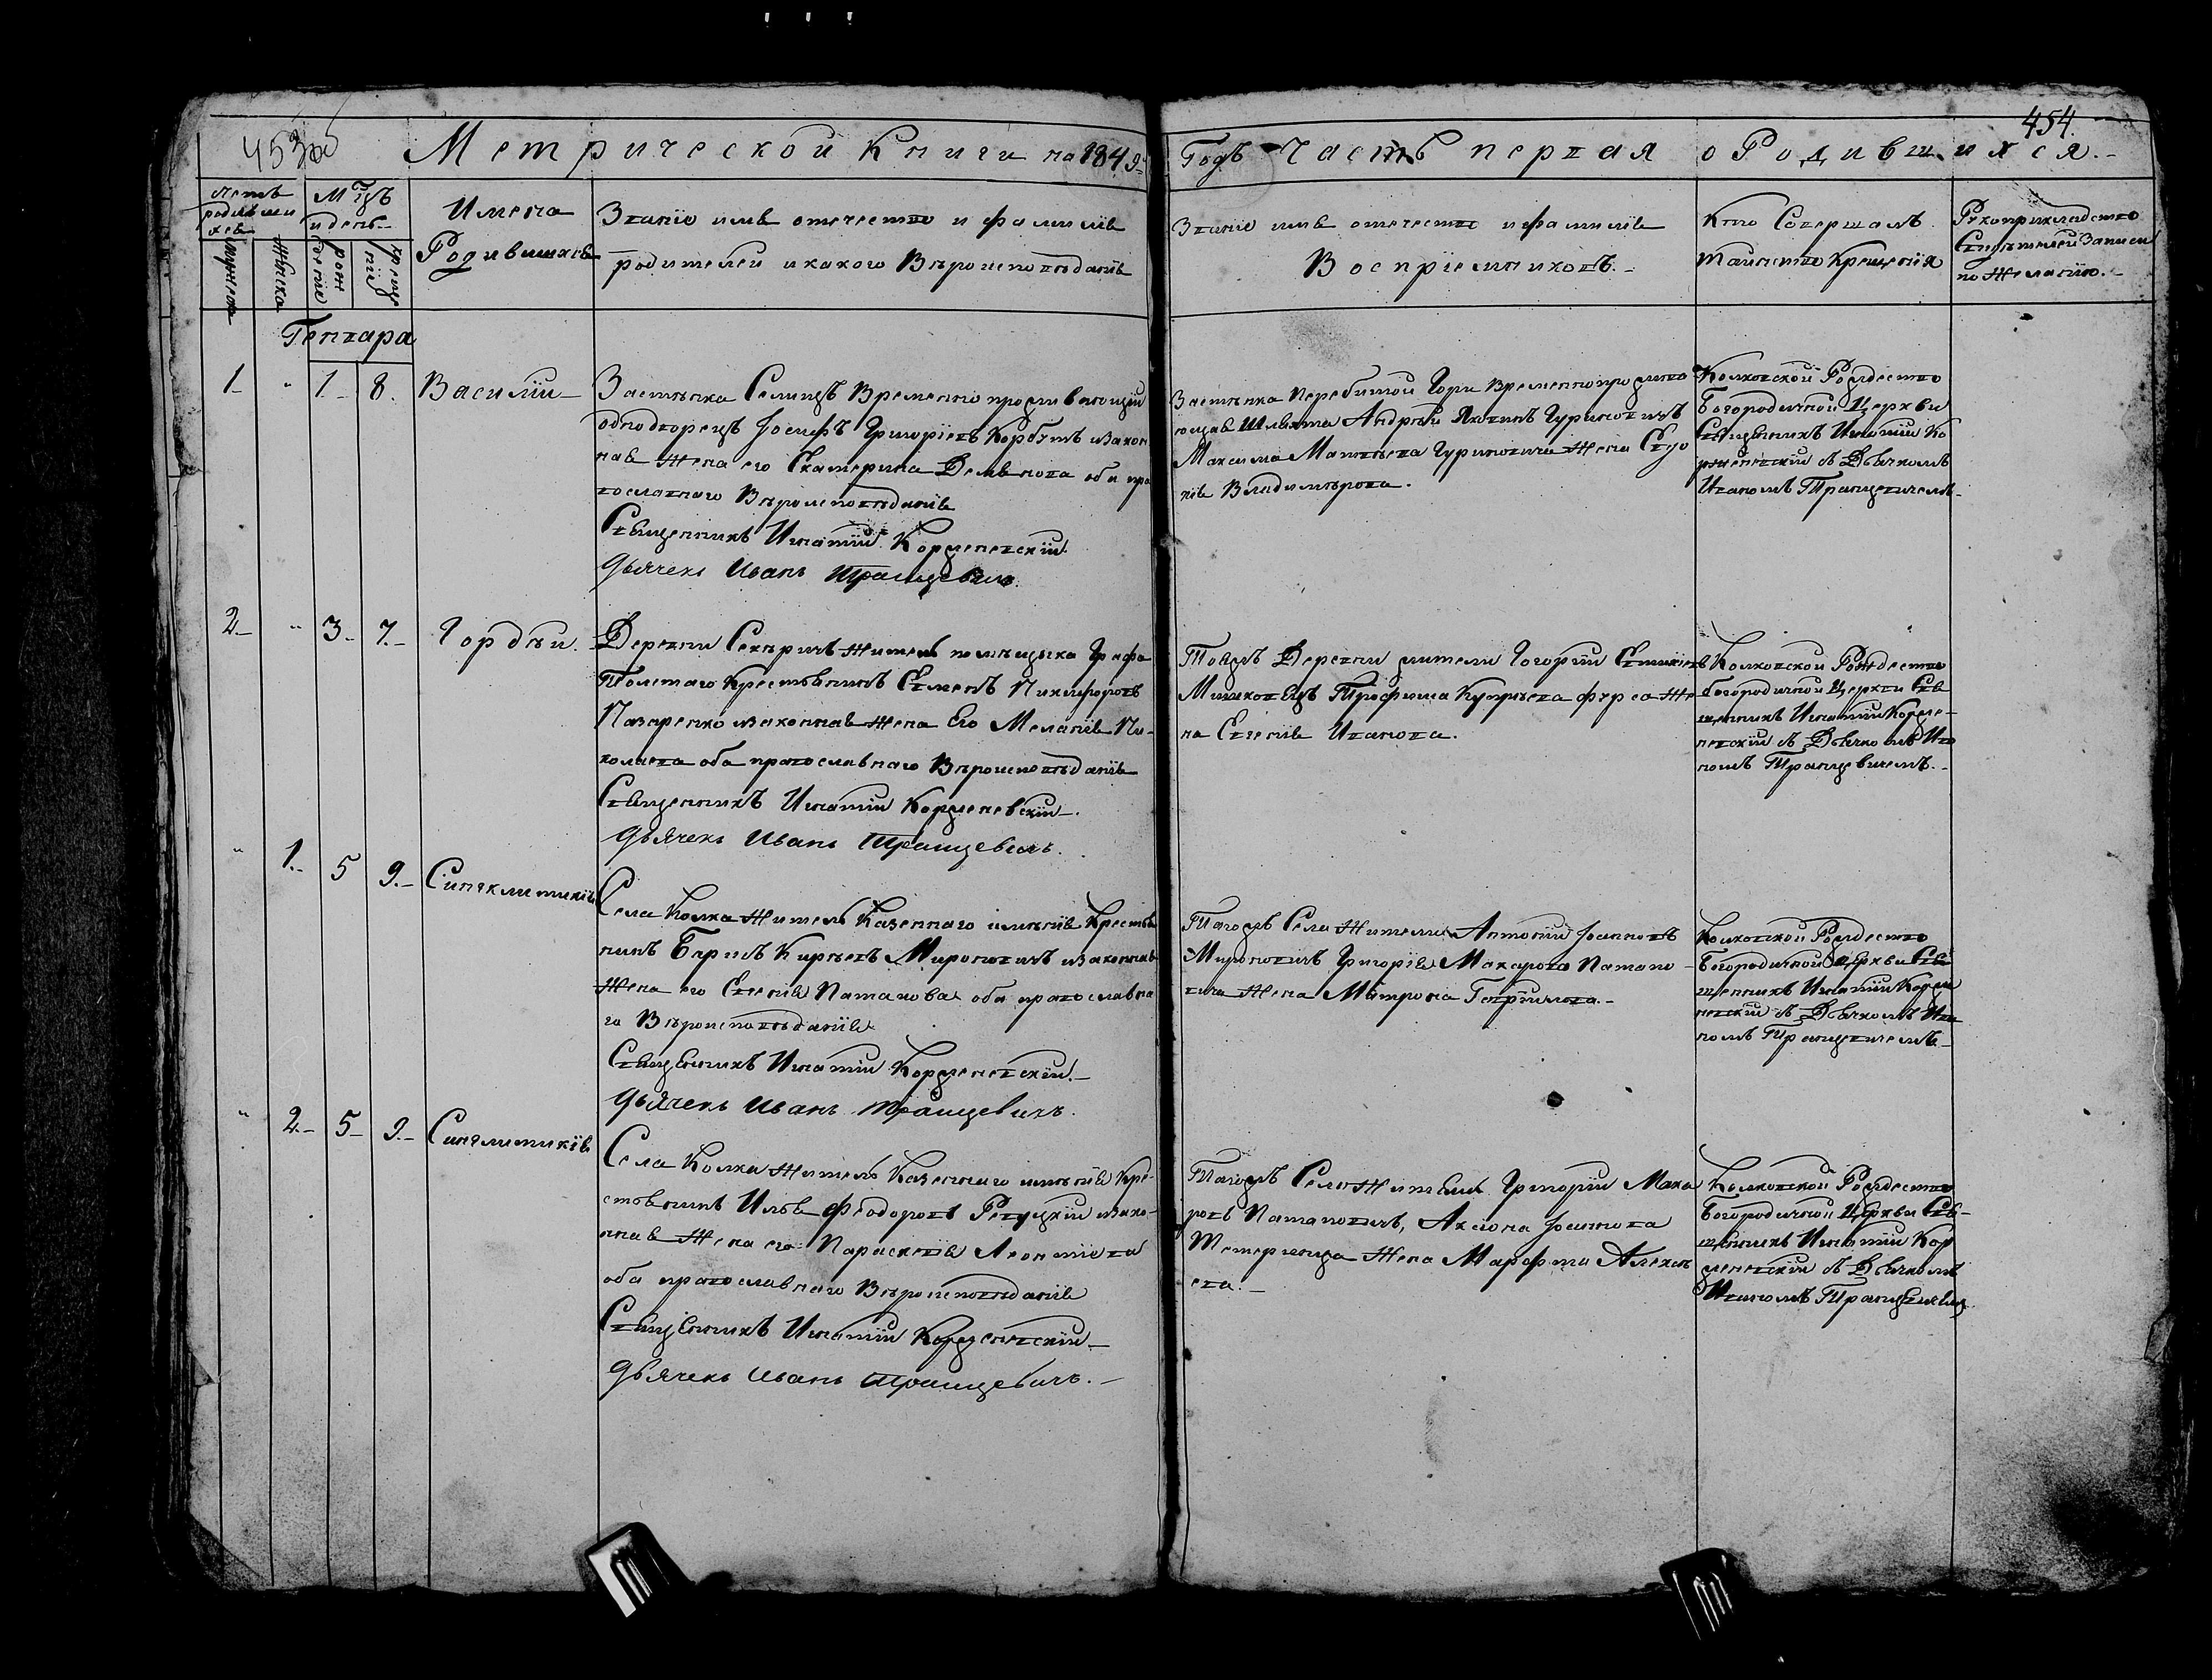 453об
454.
Метрической Книги на 1849
Годъ Часть первая о Родившихся.
Имена
Родившихся
Званіе имя отечество и фамилія
родителей и какого Вѣроисповѣданія
Званіе имя отечество и фамилія
Воспріемниковъ.
Кто Совершалъ
таинство Крещенія
Рукоприкладство
Свидѣтелей Записи
по Желанію.
Генваря
1 " 1 8. Василій
Застѣнка Селищъ Временно проживающій
однодворецъ Іосифъ Григоріевъ Корбутъ и закон
ная Жена его Екатерина Демянова оба пра
вославнаго Вѣроисповѣданія
Священникъ Игнатій Корженевскій.
дьячекъ Иванъ Транцевичъ.
Застѣнка Перебитой Гори Временно прожива
ющая Шляхта Андрей Яковлевъ Гуриновичъ
Максима Матвѣева Гуриновича Жена Евдо
кія Владимѣрова.
Колковской Рождество
Богородичной Церкви
Священникъ Игнатій Ко
рженевскій съ Дьячкомъ
Иваномъ Транцевичемъ
2 " 3 7. Гордѣй.
Деревни Секѣричъ Житель помѣщика Графа
Толстаго Крестьянинъ Семенъ Никифоровъ
Назаренко и законная Жена Его Меланія Ни
колаева оба православнаго Вѣроисповѣданія
Священникъ Игнатій Корженевскій.
дьячекъ Иванъ Транцевичъ.
Тоеяжъ Деревни жители Гогорій
Трофима Жe
на Евгенія Иванова.
Колковской Рождество
богородичной Церкви Свя
щенникъ Игнатій Корже
невскій съ Дьячкомъ Ива
номъ Транцевичемъ.
" 1. 5 9. Синклитикія
Села Колка Житель Казеннаго имѣнія Крестья
нинъ Борисъ Кирѣевъ Мироновичъ и законная
Жена его Евгенія Патапова оба православна
го Вѣроисповѣданія
Священникъ Игнатій Корженевскій.
дьячекъ Иванъ Транцевичъ.
Тогожъ Села Жители Антоній Іоанновъ
Мироновичъ Григорія Макарова Патапо
вича Жена Матрона Гавріилова.
Колковской Рождество
Богородичной Церкви Свя
щенникъ Игнатій Корже
невскій съ Дьячкомъ Ива
номъ Транцевичемъ
" 2. 5 9. Синглитикія
Села Колка Житель Казеннаго имѣнія Кре
стьянинъ Илья Феодоровъ Ревуцкій и зако
нная Жена его Параскевія Леонтіева
оба православнаго Вѣроисповѣданія
Священникъ Игнатій Корженевскій
дьячекъ Иванъ Транцевичъ.
Тогожъ Села Жители Григорій Мака
ровъ Патаповичъ, Аксона Іоаннова
Жена Марфа Алексѣ
ева.
Колковской Рождество
Богородичной Церкви Свя
щенникъ Игнатій Кор
женевскій съ Дьячкомъ
Иваномъ Транцевичемъ